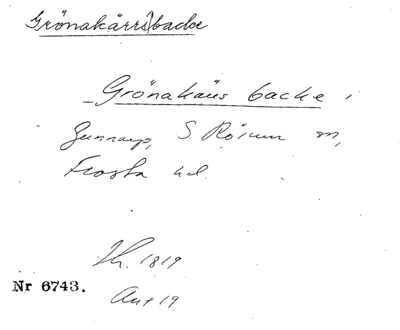 Grönakärrsbacke
Grönakärs backe i
Gunnarp, S. Rörum sn,
Frosta hd.
Sk. 1819
Nr 6743.
Ant 19